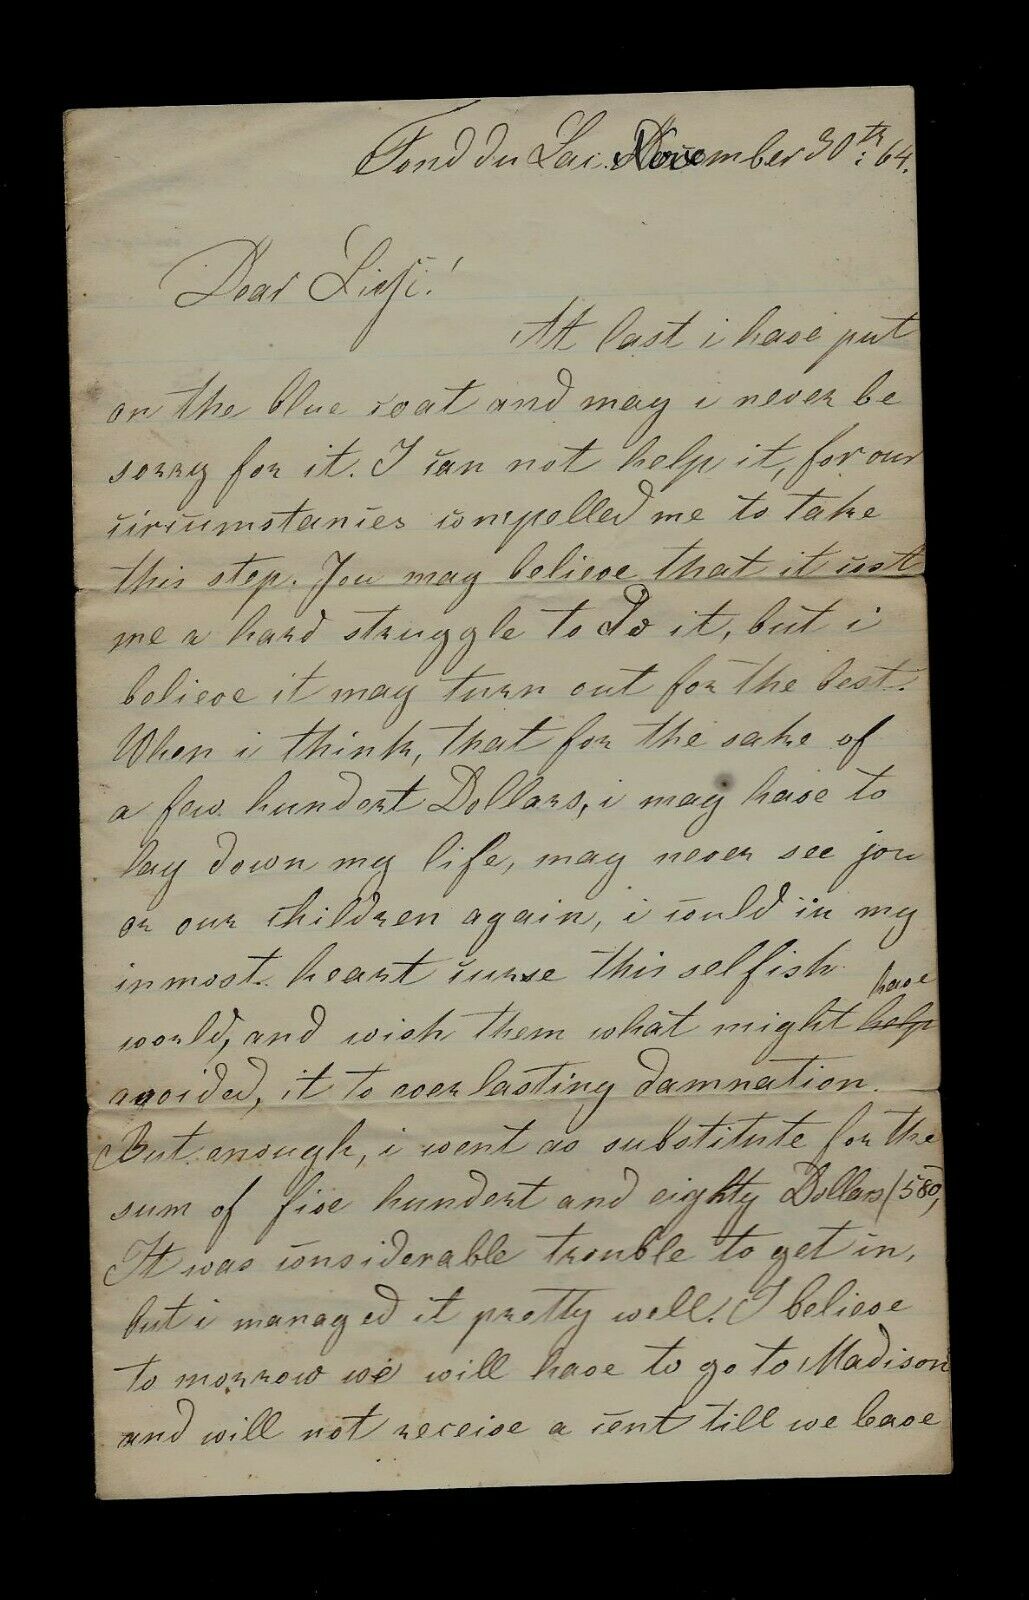 Fond du Lac. November 30th: 64.
Dear !
At last i have put
on the blue coat and may i never be
sorry for it. I can not help it, for our
circumstances compelled me to take
this step. You may believe that it cost
me a hard struggle to do it, but i
believe it may turn out for the best.
When i think, that for the sake of
a few hundert Dollars, i may have to
lay down my life, may never see you
or our children again, i could in my
inmost heart curse this selfish
have
world, and wish them what might help
avoided, it to everlasting damnation.
But enough, i went as substitute for the
sum of five hundert and eighty Dollars (580,
It was considerable trouble to get in,
but i managed it pretty well. I believe
to morrow we will have to go to Madison
and will not receive a cent till we leave